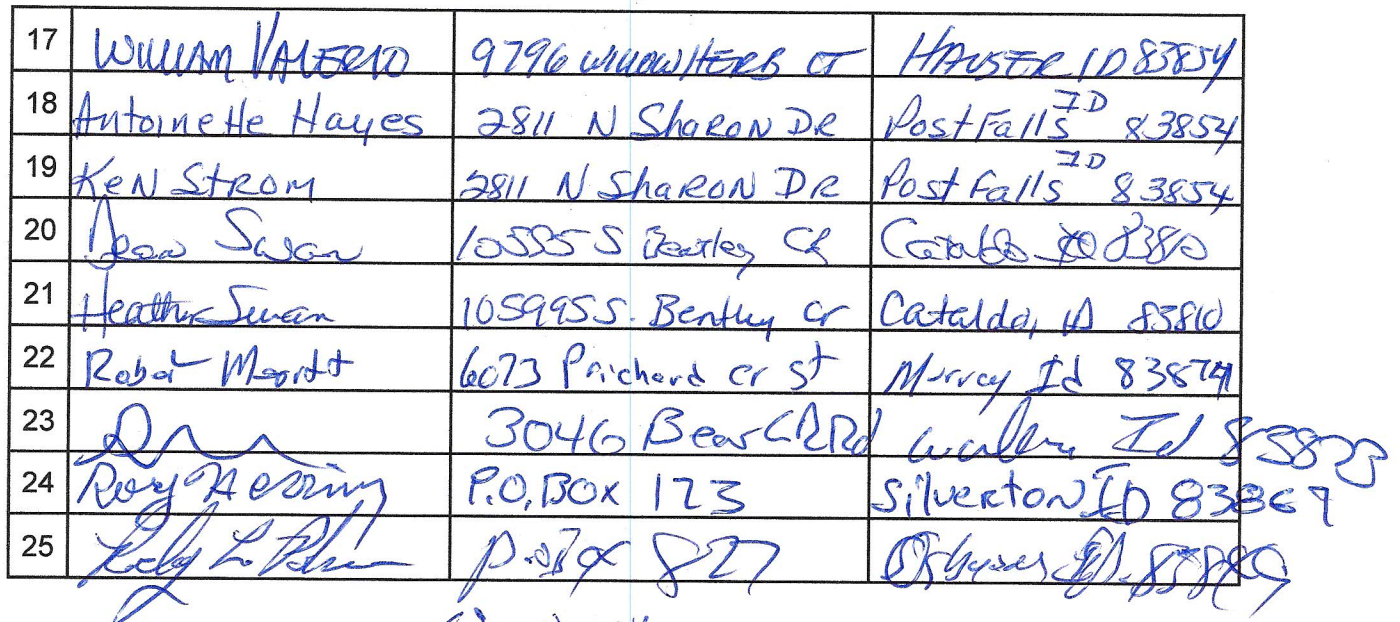 17 WILLIAM VALERIO 9796 WILLOW HERB CT HAUSER ID 83854
18 Antoinette Hayes 2811 N SharoN DR Post Falls ID 83854
19 KeN StRom 2811 N SharoN DR Post Falls ID 83854
20 Swan S Bentley Cataldo 83810
21 Heather Swan 105995 S. Bentley Cr Cataldo, ID 83810
22 6073 Prichard cr st Murray Id 83874
23 3046 Bear CR Rd Id 83873
24 Roy P.O. BOX 123 SilvertoN ID 83867
25 P.O Box 827